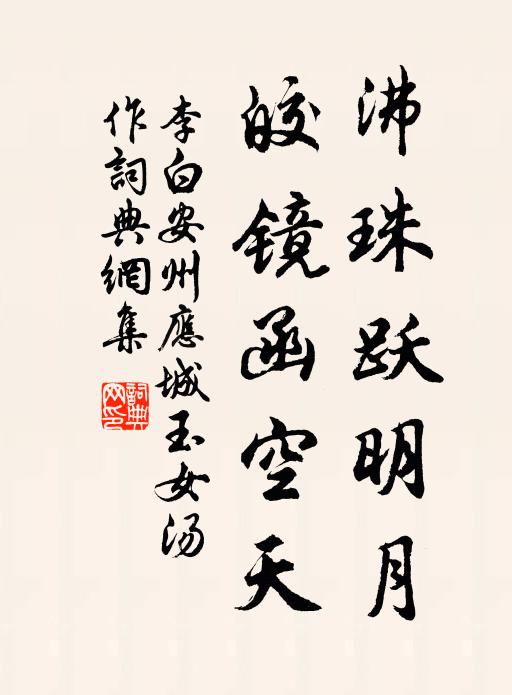 沸珠跃明月
皎镜函空天
李白安州應城玉女汤
作詞典網集
詞典網印